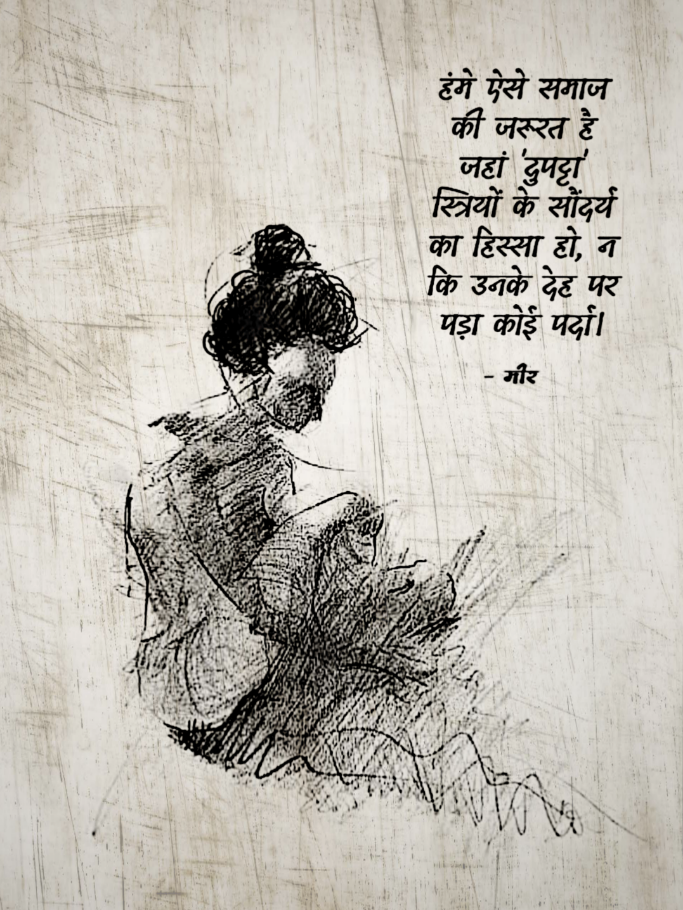 हंमे ऐसे समाज
की जरूरत है
जहां 'दुपट्टा'
स्त्रियों के सौंदर्य
का हिस्सा हो, न
कि उनके देह पर
पड़ा कोई पर्दा।
- मीर